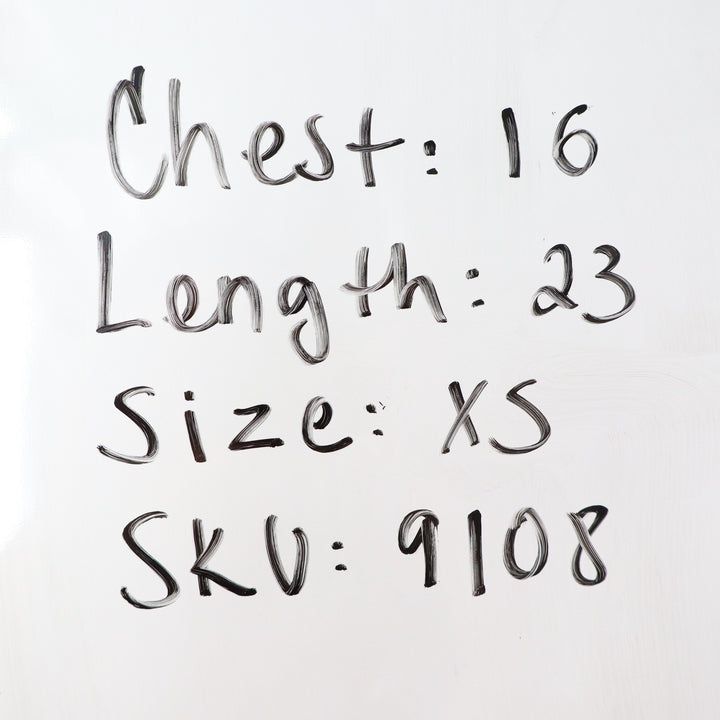 Chest: 16
Length: 23
Size: XS
SKU: 9108